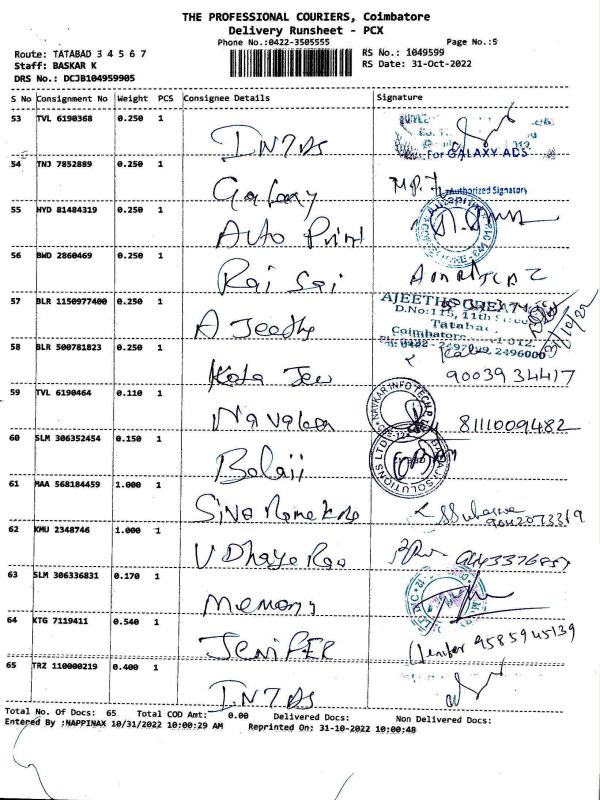 THE PROFESSIONAL COURIERS, Coimbatore
Delivery Runsheet - PCX
Phone No.:0422-3505555 Page No.:5
Route: TATABAD 3 4 5 6 7 RS No.: 1049599
Staff: BASKAR K RS Date: 31-Oct-2022
DRS No.: DCJB104959905
S No Consignment No Weight PCS Consignee Details Signature
53 TVL 6190368 0.250 1
For GALAXY ADS
54 TNJ 7852889 0.250 1 Galaxy
Authorized Signatory
55 HYD 81484319 0.250 1 Auto Print
56 BWD 2860469 0.250 1 Rai Sai
57 BLR 1150977400 0.250 1 A Jeeths
AJEETHS
D.No:115, 11th
Tatabad
Coimbatore 012.
2496000
31/10/22
58 BLR 500781823 0.250 1 Kota
9003934417
59 TVL 6190464 0.110 1
NAVKAR INFO TECH
8111009482
60 SLM 306352454 0.150 1 Balaji
BALAJI SOLUTIONS LTD
61 MAA 568184459 1.000 1
62 KMU 2348746 1.000 1 UDhaya
63 SLM 306336831 0.170 1 Memory
64 KTG 7119411 0.540 1 JENIFER Jenifer 9585945139
65 TRZ 110000219 0.400 1
Total No. Of Docs: 65 Total COD Amt: 0.00 Delivered Docs: Non Delivered Docs:
Entered By :NAPPINAX 10/31/2022 10:00:29 AM Reprinted On: 31-10-2022 10:00:48